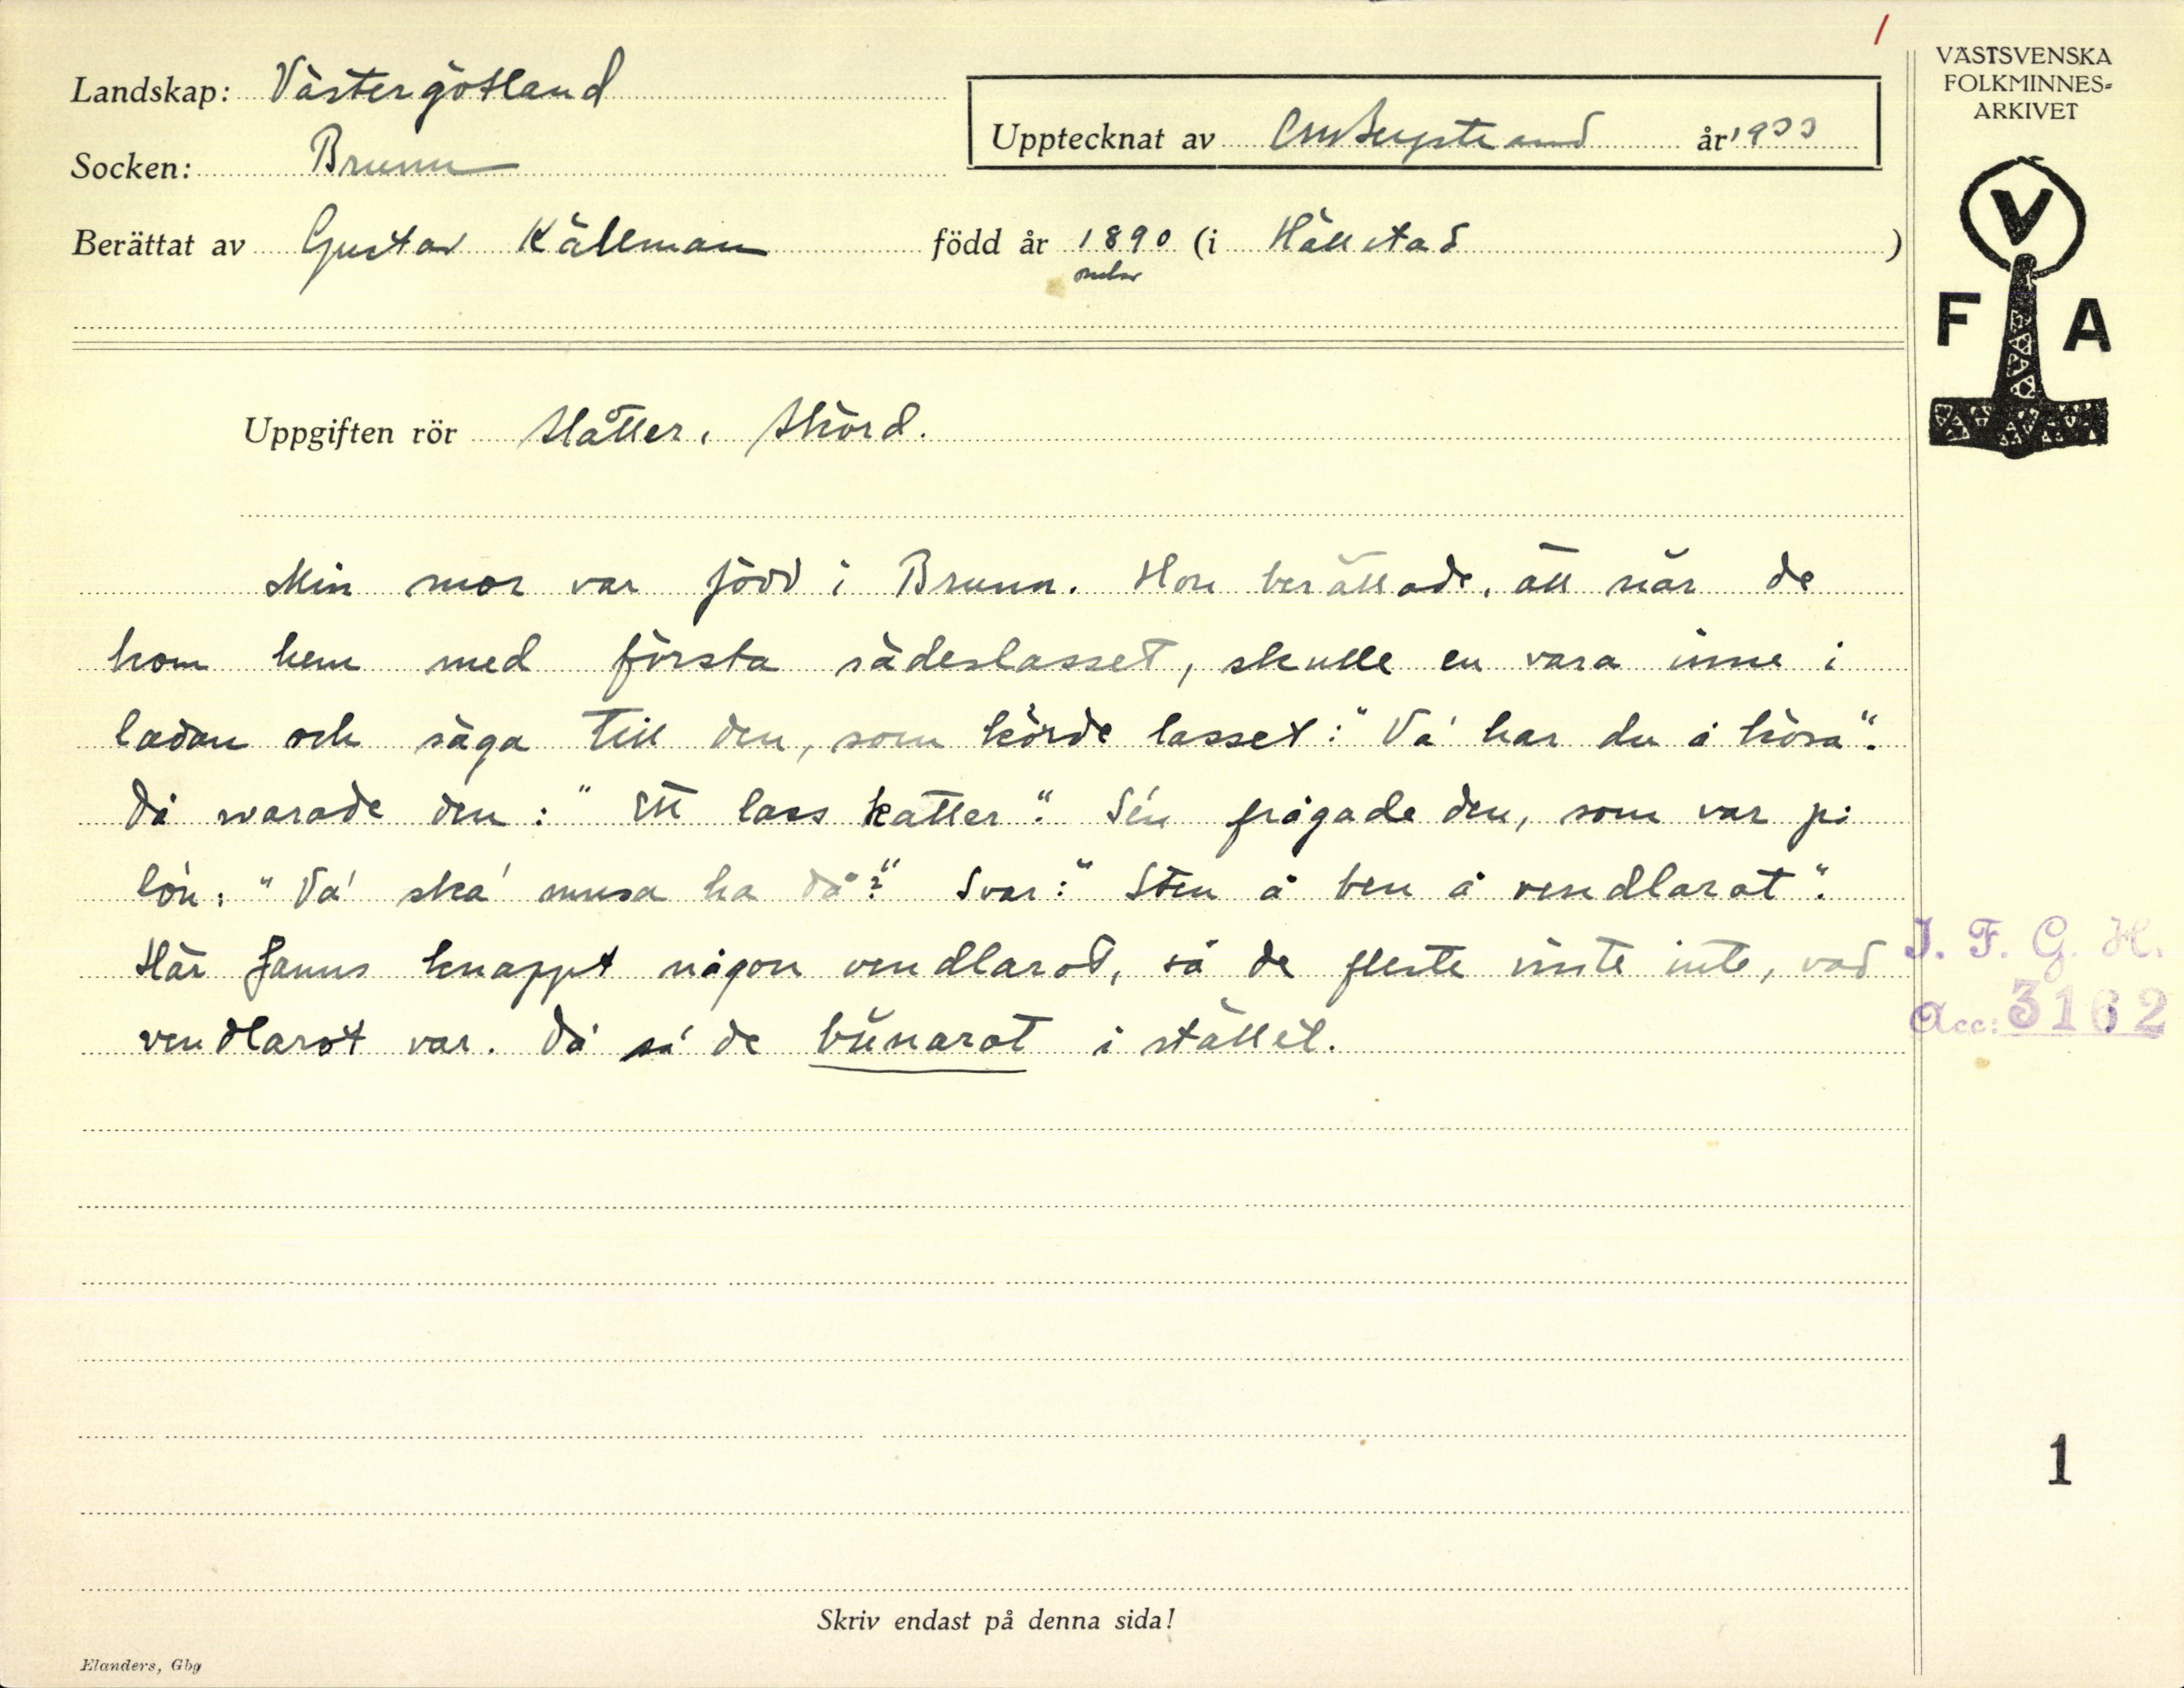 1
Landskap: Västergötland
Socken: Brunn
Upptecknat av CM Bergstrand år 1933
Berättat av Gustav Källman född år 1890 (i Hällstad)
Uppgiften rör Slåtter, Skörd.
Min mor var född i Brunn. Hon berättade, att när de
kom hem med första sädeslasset, skulle en vara inne i
ladan och säga till den, som körde lasset: "Va' har du å köra".
Då svarade den: "Ett lass katter". Sén frågade den, som var på
lón: "Va' ska' musa ha då?" Svar: "Sten å ben å vendlarot".
Här fanns knappt någon vendlarot, så de fleste visste inte, vad
vendlarot var. Då sá de bünarot i stället.
VÄSTSVENSKA
FOLKMINNES=
ARKIVET
V
F A
I. F. G. H.
Acc: 3162
1
Skriv endast på denna sida!
Elanders, Gbg